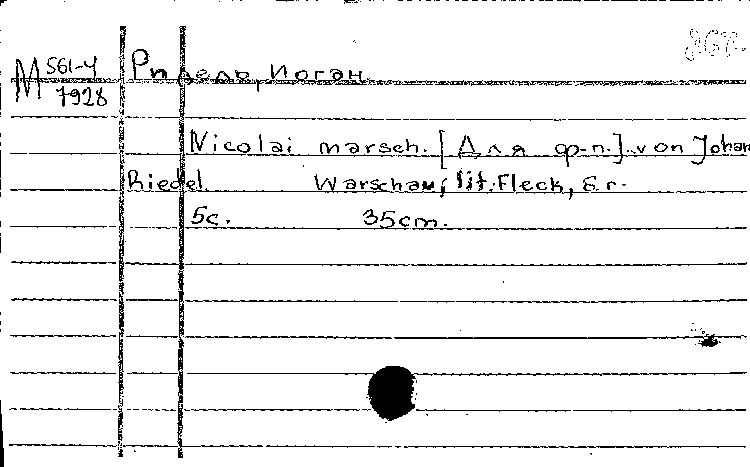 М 561-4 Ридель, Иоган.
7928
Nicolai marsch. [Для ф-п.] von Johan
Riedel Warschau, lit. Fleck, s.r.
5c. 35cm.